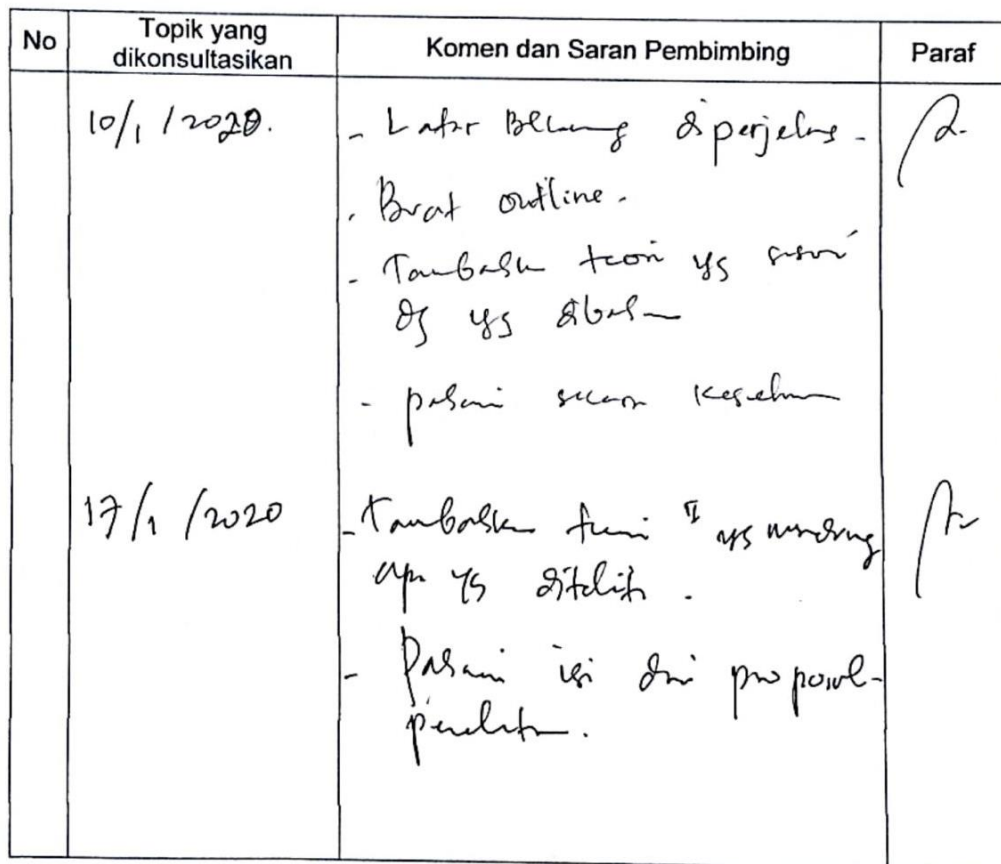 No
Topik yang
dikonsultasikan
Komen dan Saran Pembimbing
Paraf
10/1 / 2020.
- Latar Belakang diperjelas -
- Buat outline.
- Tambahkan teori yg sesuai
dg yg dibahas
- pahami secara keseluruhan
17/1 / 2020
- Tambahkan teori yg mendukung
apa yg diteliti.
- Pahami isi dari proposal
penelitian.